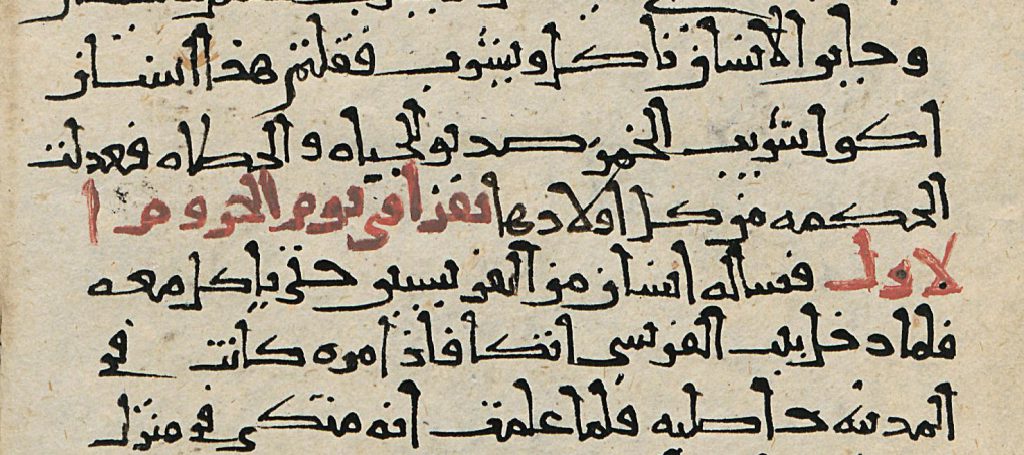 وجا بن الانسان ناكل ويشرب فقلتم هذا انسان
اكول شريب الخمر صديق الجباه والخطاه فعدلت
الحكمه من كل اولادها تقرا في يوم الحر وم ا
لاول فساله انسان من الفريسيين حتى ياكل معه
فلما دخل بيت الفريسي اتكا فاذ امره كانت في
المدينه خاطيه فلما علمت انه متكي في منزل